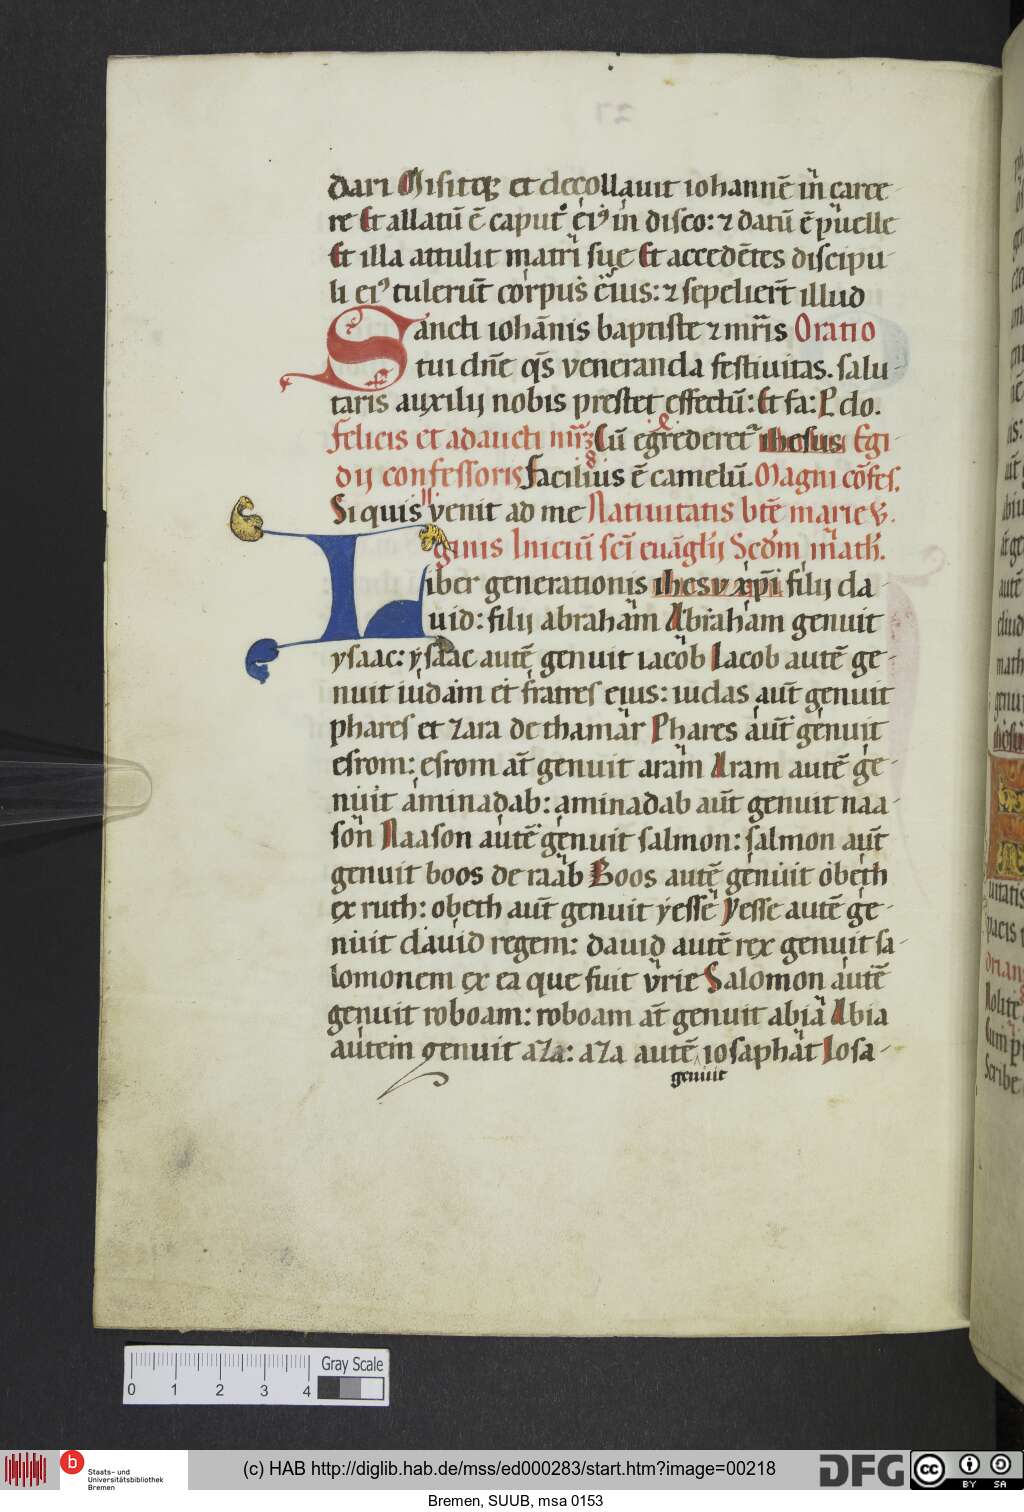 dari Misitqꝫ et decollauit iohannē in carce-
re Et allatū ē caput eiꝰ in disco: ⁊ datū ē puelle
Et illa attulit matri sue Et accedētes discipu-
li eiꝰ tulerūt corpus eius: ⁊ sepelierūt illud
Sancti iohānis baptiste ⁊ mr̄is Oratio
tui dn̄e qs̄ veneranda festiuitas. salu-
taris auxilij nobis prestet effectū: Et fa: P do.
Felicis et adaucti mr̄ꝫ Cū egrederet᷑ ihesus Egi-
dij confessoris facilius ē camelū. Magni cōfes.
Si quis venit ad me Natiuitatis btē marie v.
ginis Iniciū scī euāglij Scdm math.
Liber generationis ihesu xp̄i filij da-
uid: filij abraham Abraham genuit
ysaac: ysaac autē genuit iacob Iacob autē ge-
nuit iudam et fratres eius: iudas aut̄ genuit
phares et zara de thamar Phares aut̄ genuit
esrom: esrom at̄ genuit aram Aram autē ge-
nuit aminadab: aminadab aut̄ genuit naa-
son Naason autē genuit salmon: salmon aut̄
genuit boos de raab Boos autē genuit obeth
ex ruth: obeth aut̄ genuit yesse Yesse autē ge-
nuit dauid regem: dauid autē rex genuit sa-
lomonem ex ea que fuit vrie Salomon autē
genuit roboam: roboam at̄ genuit abia Abia
autem genuit aza: aza autē iosaphat Iosa-
genuit
Gray Scale
0 1 2 3 4
b
Staats- und
Universitätsbibliothek
Bremen
(c) HAB http://diglib.hab.de/mss/ed000283/start.htm?image=00218
DFG
cc
BY SA
Bremen, SUUB, msa 0153